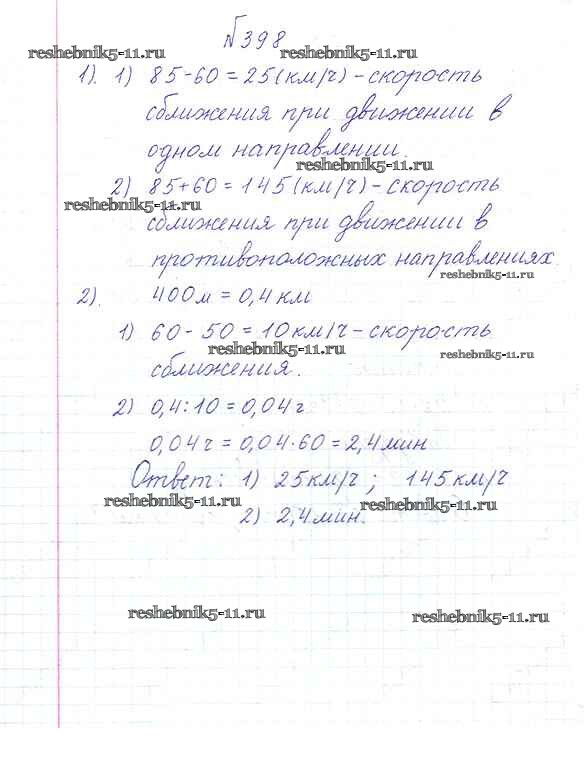 №398
reshebnik5-11.ru reshebnik5-11.ru
1). 1) 85-60=25(км/ч)-скорость
сближения при движении в
одном направлении.
reshebnik5-11.ru
2) 85+60=145(км/ч)-скорость
reshebnik5-11.ru
сближения при движении в
противоположных направлениях.
reshebnik5-11.ru
2). 400м=0,4км
1) 60-50=10км/ч-скорость
reshebnik5-11.ru reshebnik5-11.ru
сближения.
2) 0,4:10=0,04ч
0,04ч=0,04·60=2,4мин
Ответ: 1) 25км/ч; 145км/ч
reshebnik5-11.ru reshebnik5-11.ru
2) 2,4мин.
reshebnik5-11.ru reshebnik5-11.ru